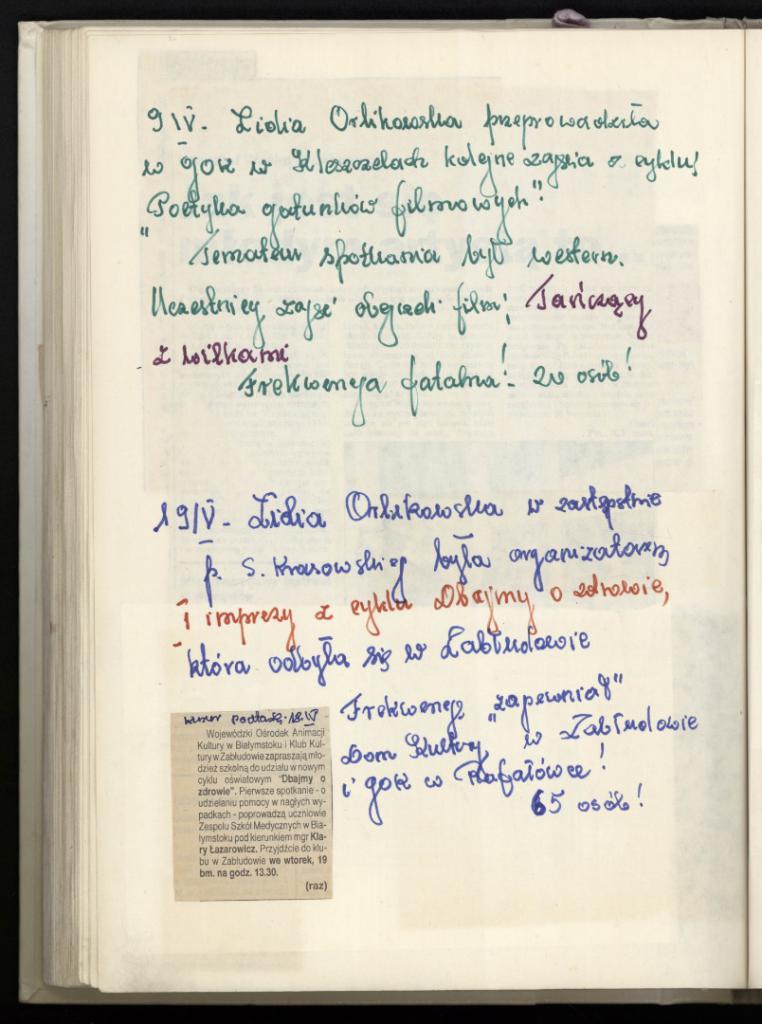 9 IV. Lidia Orlikowska przeprowadziła
w GOK w Kleszczelach kolejne zajęcia z cyklu
"Poetyka gatunków filmowych".
Tematem spotkania był western.
Uczestnicy zajęć obejrzeli film: Tańczący
z wilkami
Frekwencja fatalna! - 20 osób!
19/IV - Lidia Orlikowska w zastępstwie
p. S. Krasowskiej była organizatorką
I imprezy z cyklu Dbajmy o zdrowie,
która odbyła się w Zabłudowie
Kurier Podlaski - 18.IV
Wojewódzki Ośrodek Animacji
Kultury w Białymstoku i Klub Kul-
tury w Zabłudowie zapraszają mło-
dzież szkolną do udziału w nowym
cyklu oświatowym "Dbajmy o
zdrowie". Pierwsze spotkanie - o
udzielaniu pomocy w nagłych wy-
padkach - poprowadzą uczniowie
Zespołu Szkół Medycznych w Bia-
łymstoku pod kierunkiem mgr Kla-
ry Łazarowicz. Przyjdźcie do klu-
bu w Zabłudowie we wtorek, 19
bm. na godz. 13.30.
(raz)
Frekwencję "zapewniał"
Dom Kultury w Zabłudowie
i GOK w Rafałówce!
65 osób!